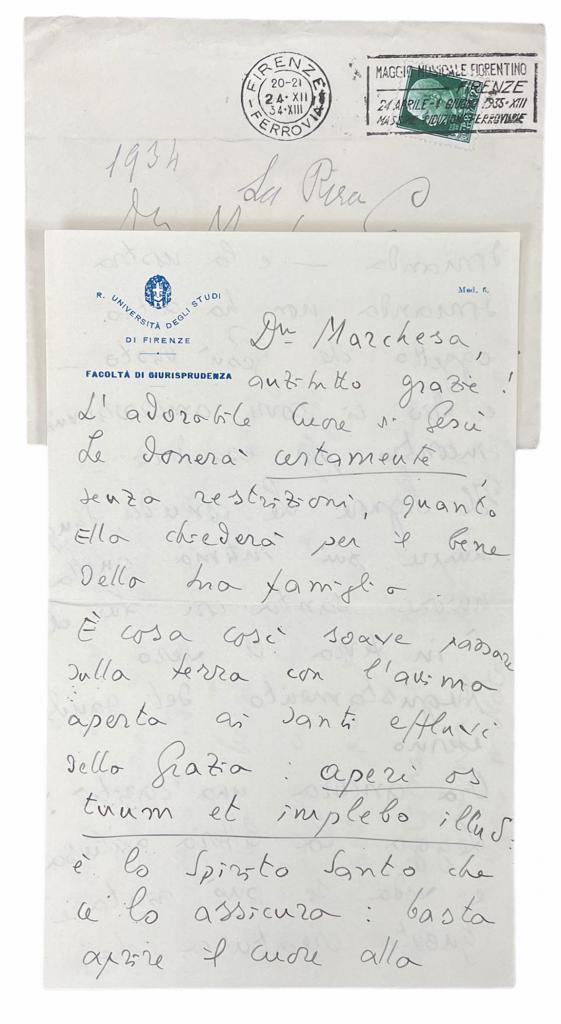 FIRENZE
FERROVIA
20-21
24·XII
34·XIII
MAGGIO MUSICALE FIORENTINO
FIRENZE
24 APRILE - GIUGNO 1935·XIII
MASSIME RIDUZIONI FERROVIARIE
1934
La Pira
R. UNIVERSITÀ DEGLI STUDI
DI FIRENZE
FACOLTÀ DI GIURISPRUDENZA
Mod. 6.
Marchesa,
anzitutto grazie!
L'adorabile Cuore di Gesù
Le donerà certamente,
senza restrizioni, quanto
Ella chiederà per il bene
della sua famiglia.
È cosa così soave passare
sulla terra con l'anima
aperta ai santi effluvi
della Grazia: aperi os
tuum et implebo illud:
è lo Spirito Santo che
ce lo assicura: basta
aprire il cuore alla